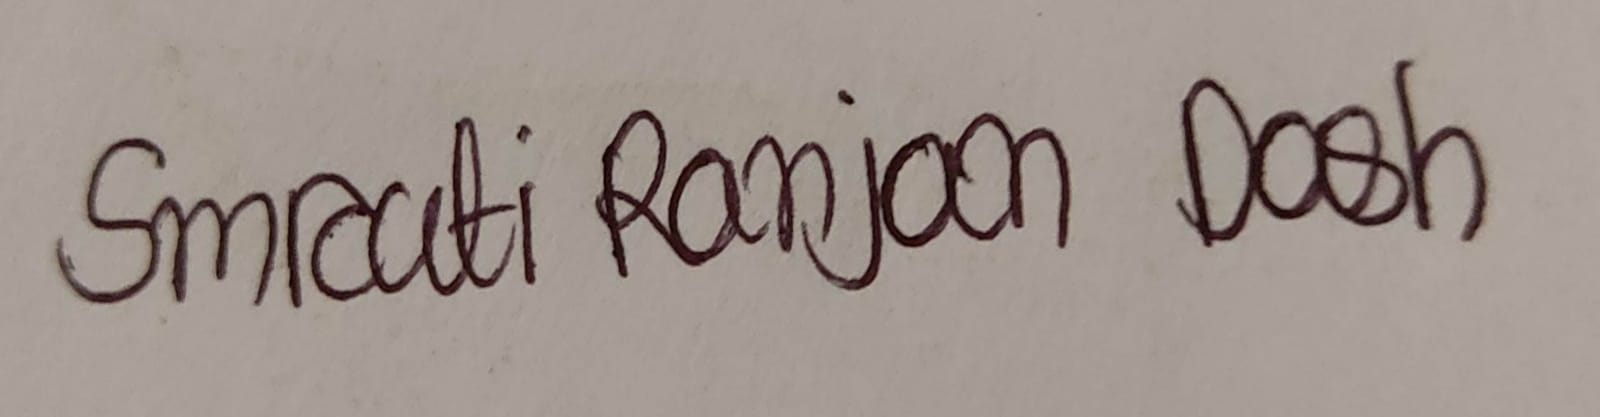 Smrauti Ranjan Dash